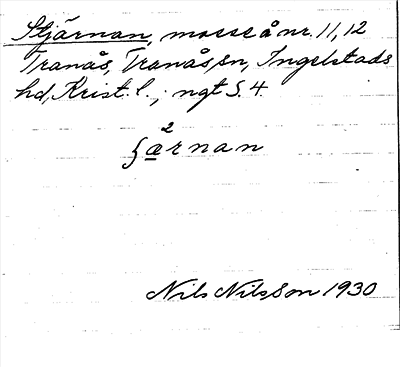 Stjärnan, mosse å nr. 11, 12
Tranås, Tranås, sn, Ingelstads
hd, Krist. l. ; ngt S. 4.
2
ʃærnan
Nils Nilsson 1930